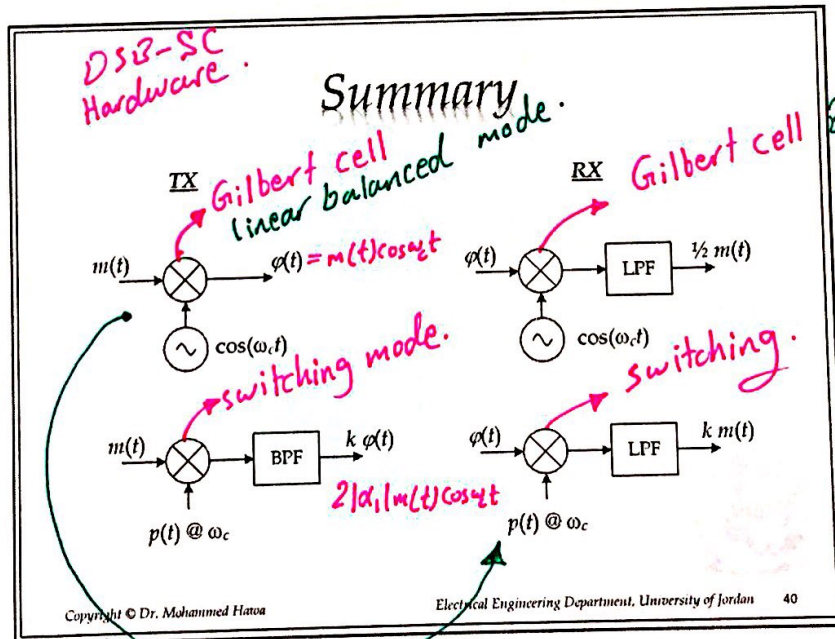 DSB-SC
Hardware.
Summary
TX
Gilbert cell
linear balanced mode.
m(t)
φ(t) = m(t)cosω_ct
cos(ω_ct)
RX
Gilbert cell
φ(t)
LPF
½ m(t)
cos(ω_ct)
switching mode.
m(t)
BPF
k φ(t)
2|α₁|m(t)cosω_ct
p(t) @ ω_c
switching.
φ(t)
LPF
k m(t)
p(t) @ ω_c
Copyright © Dr. Mohammed Hawa
Electrical Engineering Department, University of Jordan
40